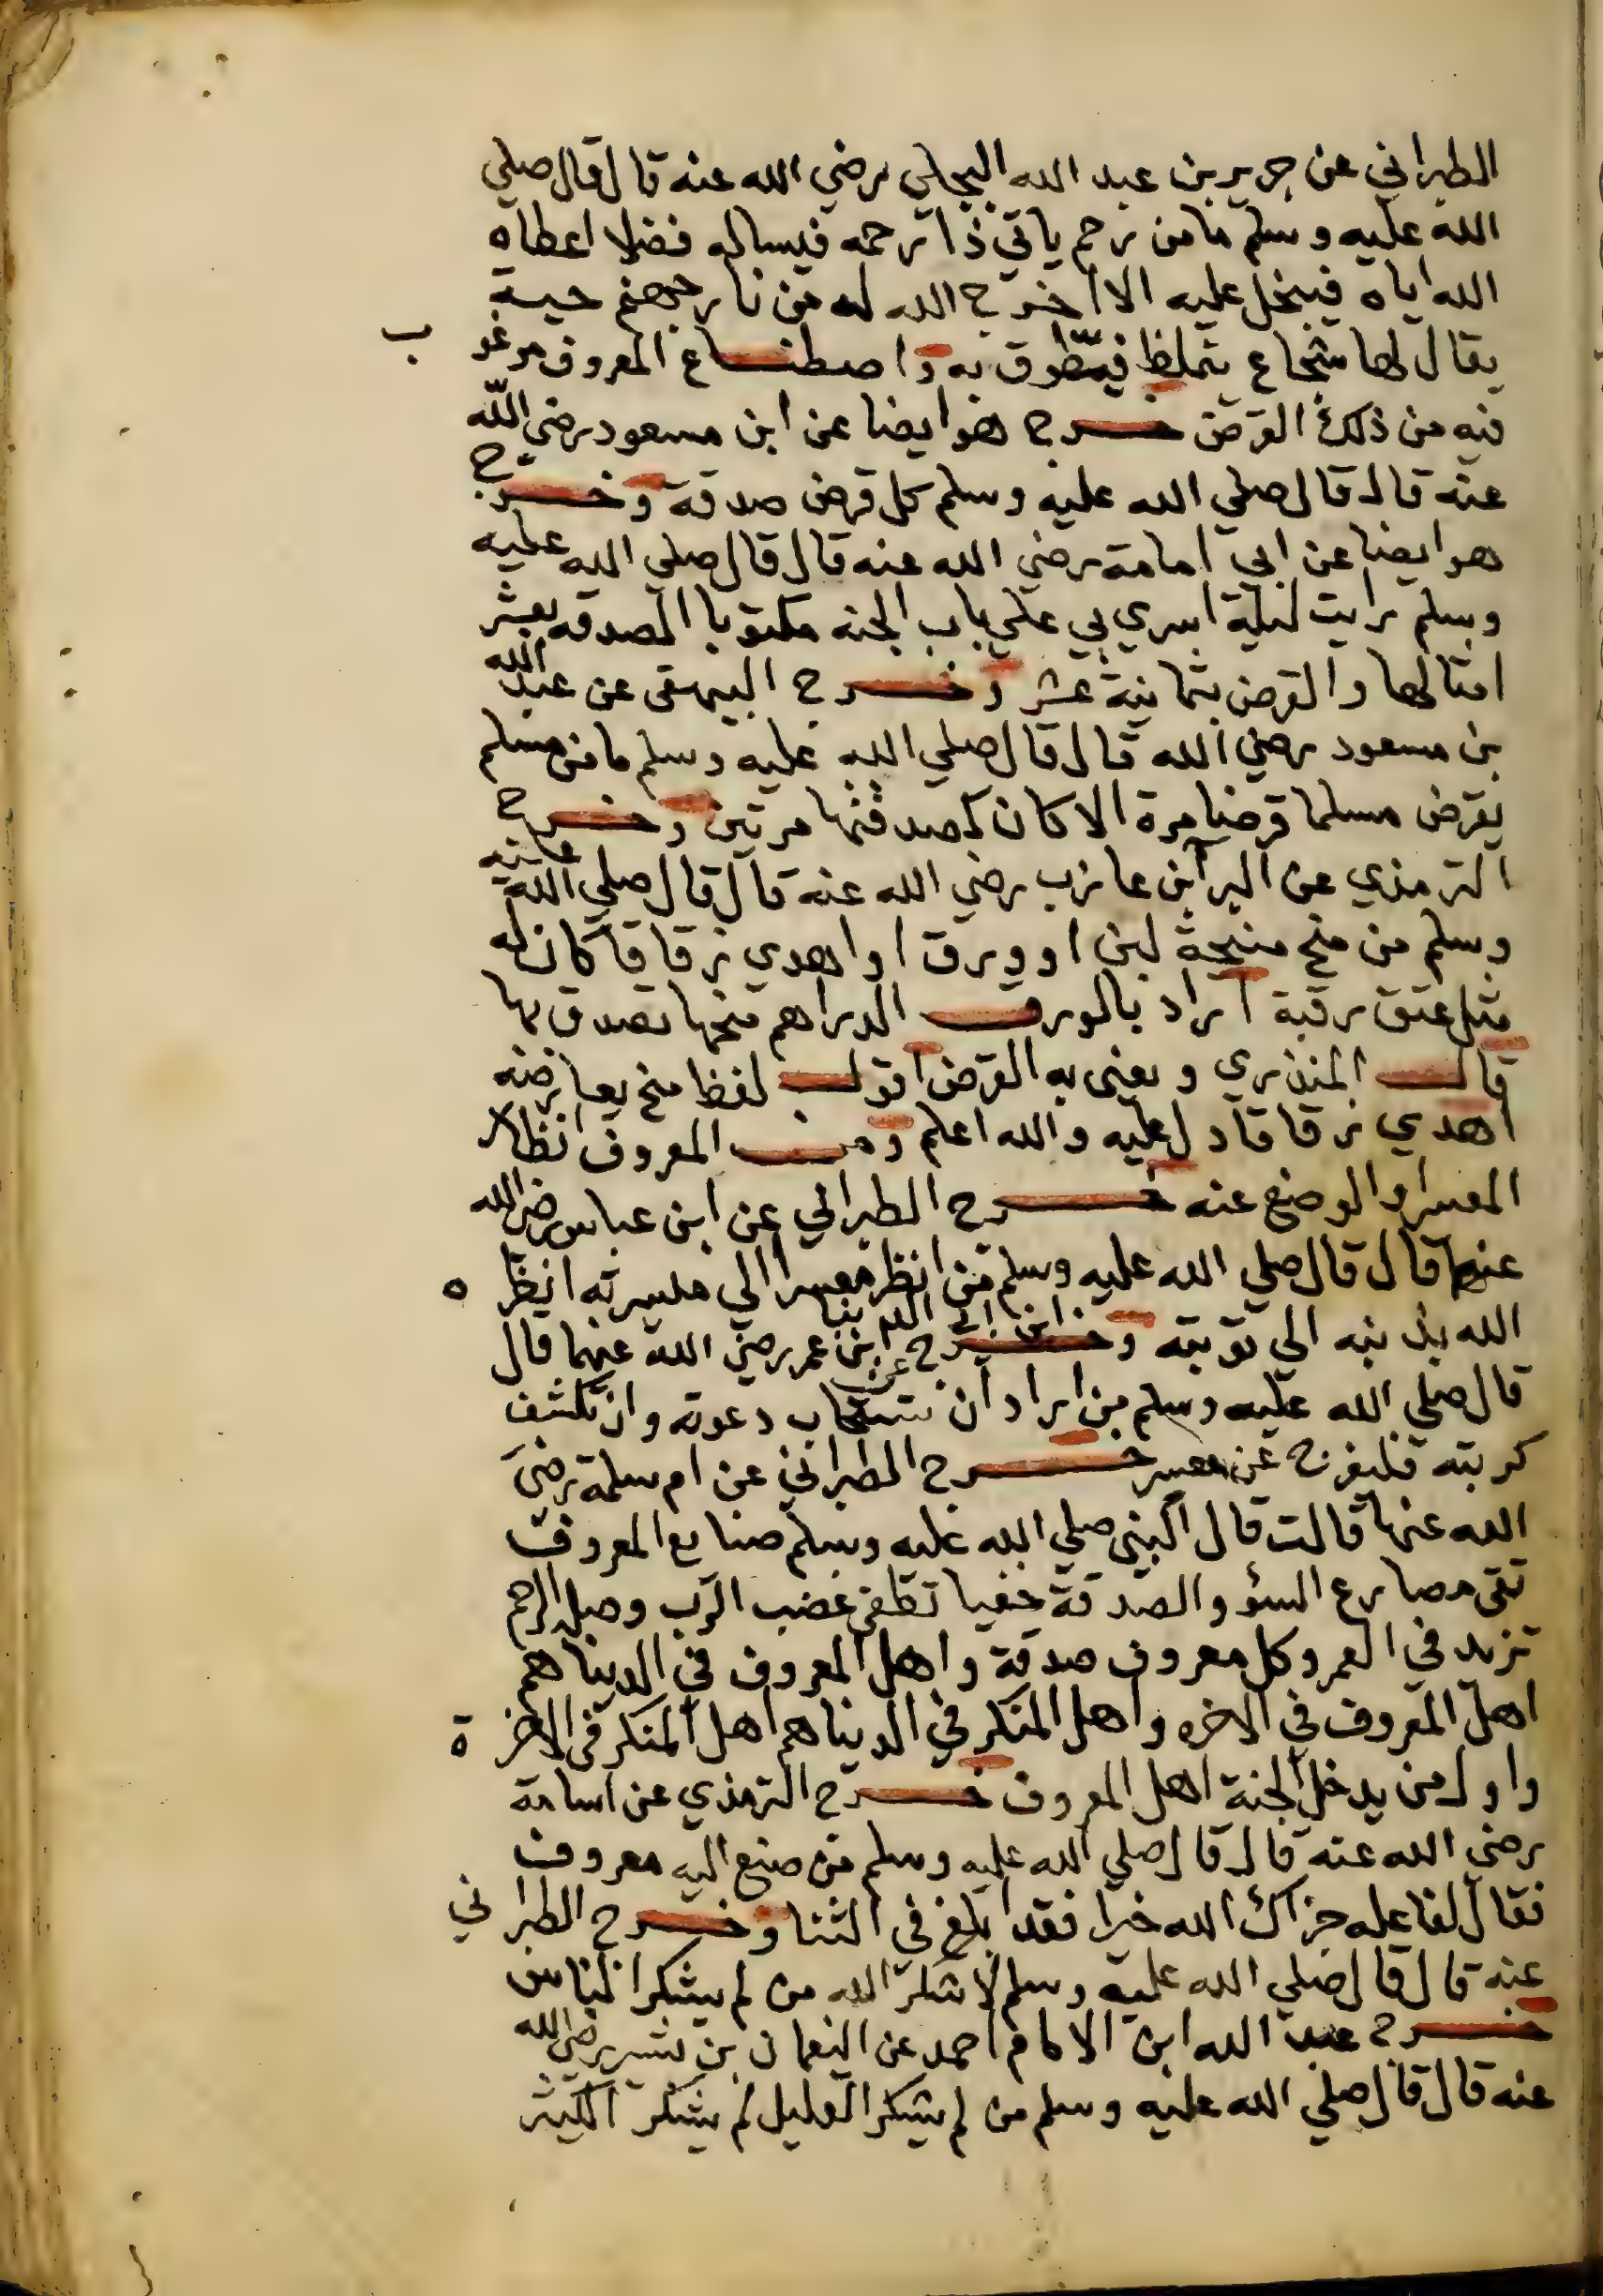 الطبراني عن جرير بن عبد الله البجلي رضي الله عنه قال قال صلي
الله عليه وسلم ما من رحم ياتي ذا رحمه فيساله فضلا اعطاه
الله اياه فيبخل عليه الا اخرج الله له من نار جهنم حية
يقال لها شجاع يتملظ فيطوق به واصطناع المعروف مرغوب
فيه من ذلك القرض خرج هو ايضا عن ابن مسعود رضي الله
عنه قال قال صلي الله عليه وسلم كل قرض صدقة وخرج
هو ايضا عن ابي امامة رضي الله عنه قال قال صلي الله عليه
وسلم رايت ليلة اسري بي علي باب الجنه مكتوبا الصدقه بعشر
امثالها والقرض بثمانية عشر وخرج البيهقي عن عبد الله
بن مسعود رضي الله قال قال صلي الله عليه وسلم ما من مسلم
يقرض مسلما قرضا مرة الا كان كصدقتها مرتين وخرج
الترمذي عن البرا بن عازب رضي الله عنه قال قال صلي الله عليه
وسلم من منح منيحة لبن او ورق او اهدي زقاقا كان له
مثل عتق رقبة اراد بالورق الدراهم منحها تصدق بها
قال المنذري ويعني به القرض اقول لفظ منح يعارضه
اهدي زقاقا دل عليه والله اعلم ومن المعروف انظار
المعسر والوضع عنه خرج الطبراني عن ابن عباس رضي الله
عنهما قال قال صلي الله عليه وسلم من انظر معسرا الي ميسرته انظره
الله بذنبه الي توبته وخرج ابن ابي الدنيا عن ابن عمر رضي الله عنهما قال
قال صلي الله عليه وسلم من اراد ان تستجاب دعوته وان تكشف
كربته فليفرج عن معسر خرج الطبراني عن ام سلمة رضي
الله عنها قالت قال النبي صلي الله عليه وسلم صنايع المعروف
تقي مصارع السؤ والصدقة خفيا تطفي غضب الرب وصلة الرحم
تزيد في العمر وكل معروف صدقة واهل المعروف في الدنيا هم
اهل المعروف في الاخره واهل المنكر في الدنيا هم اهل المنكر في الاخرة
واول من يدخل الجنة اهل المعروف خرج الترمذي عن اسامة
رضي الله عنه قال قال صلي الله عليه وسلم من صنع اليه معروف
فقال لفاعله جزاك الله خيرا فقد ابلغ في الثنا وخرج الطبراني
عنه قال قال صلي الله عليه وسلم لا شكر الله من لم يشكر الناس
خرج عبد الله ابن الامام احمد عن النعمان بن بشير رضي الله
عنه قال قال صلي الله عليه وسلم من لم يشكر القليل لم يشكر الكثير